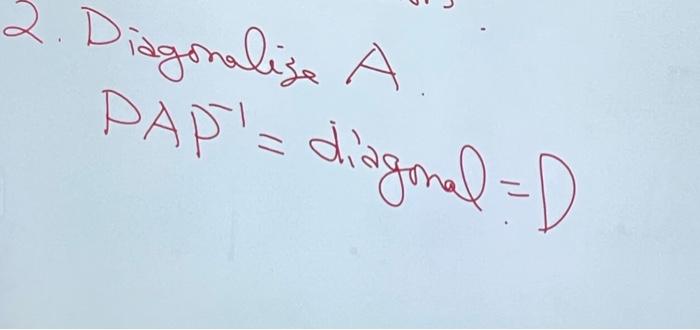 2. Diagonalize A.
PAP⁻¹ = diagonal = D